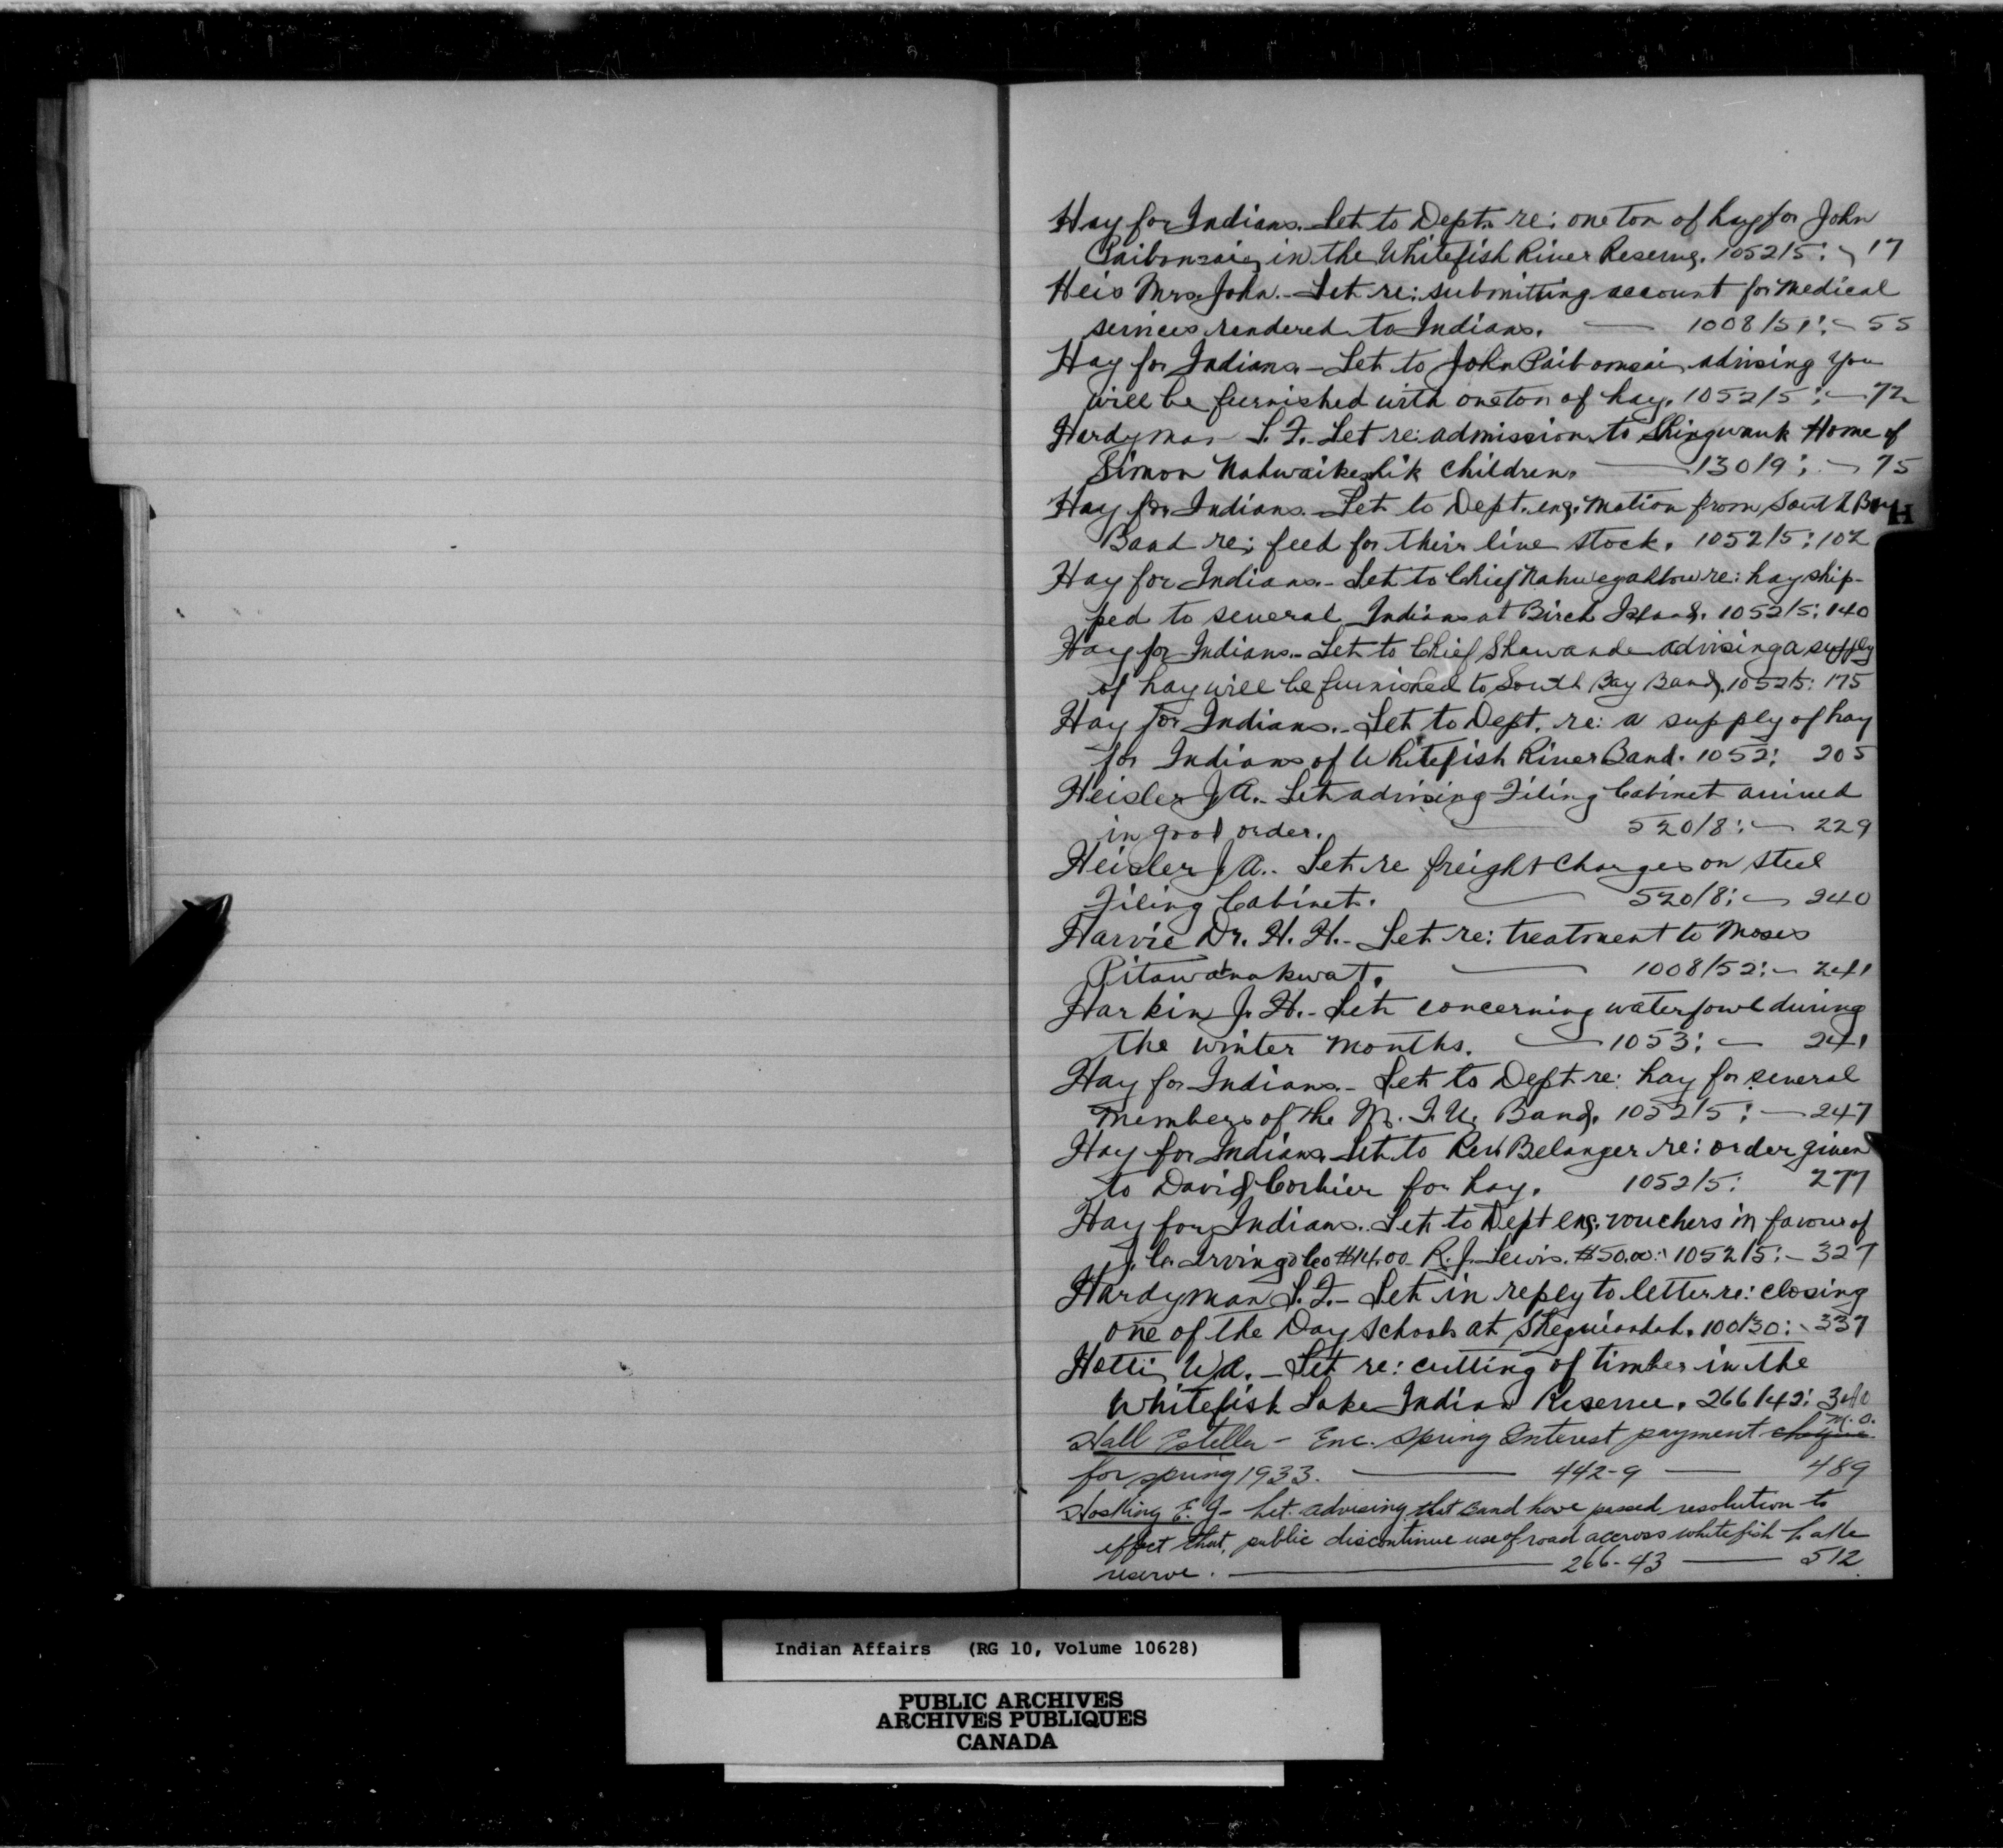 Hay for Indians. Let to Dept. re: one ton of hay for John
Paibomsai, in the Whitefish River Reserve. 1052/5: 17
Heis Mrs. John. - Let re: submitting account for medical
services rendered to Indians. — 1008/51: - 55
Hay for Indians - Let to John Paibomsai advising you
will be furnished with one ton of hay. 1052/5: - 72
Hardyman S. F. Let re: admission to Shingwauk Home of
Simon Nahwaikeshik children. — 130/9: - 75
Hay for Indians. Let to Dept. enc. motion from South Bay
Band re: feed for their live stock. 1052/5: 102
H
Hay for Indians. - Let to Chief Nahwegahbow re: hay ship-
ped to several Indians at Birch Island. 1052/5: 140
Hay for Indians. - Let to Chief Shawande advising a supply
of hay will be furnished to South Bay Band. 1052/5: 175
Hay for Indians. - Let to Dept. re: a supply of hay
for Indians of Whitefish River Band. 1052: 205
Heisler J. A. - Let advising Filing Cabinet arrived
in good order. — 520/8: - 229
Heisler J. A. - Let re freight charges on steel
Filing Cabinet. — 520/8: - 240
Harvie Dr. H. H. - Let re: treatment to Moses
Pitawanakwat. — 1008/52: - 241
Harkin J. H. - Let concerning waterfowl during
the winter months. — 1053: - 241
Hay for Indians. - Let to Dept re: hay for several
members of the M. I. U. Band. 1052/5: - 247
Hay for Indians. Let to Rev Belanger re: order given
to David Corbier for hay. 1052/5: 277
Hay for Indians. Let to Dept enc. vouchers in favour of
J. C. Irving & Co $14.00 R. J. Lewis. $50.00: 1052/5: - 327
Hardyman S. F. - Let in reply to letter re: closing
one of the Day Schools at Sheguiandah. 100/30: - 337
Hotti W. A. - Let re: cutting of timber in the
Whitefish Lake Indian Reserve. 266/42: 340
Hall Estella - Enc. Spring Interest payment cheque m.o.
for spring 1933. — 442-9 — 489
Hosking E. J - Let. advising that Band have passed resolution to
effect that, public discontinue use of road accross whitefish Lake
reserve. — 266-43 — 512
Indian Affairs (RG 10, Volume 10628)
PUBLIC ARCHIVES
ARCHIVES PUBLIQUES
CANADA